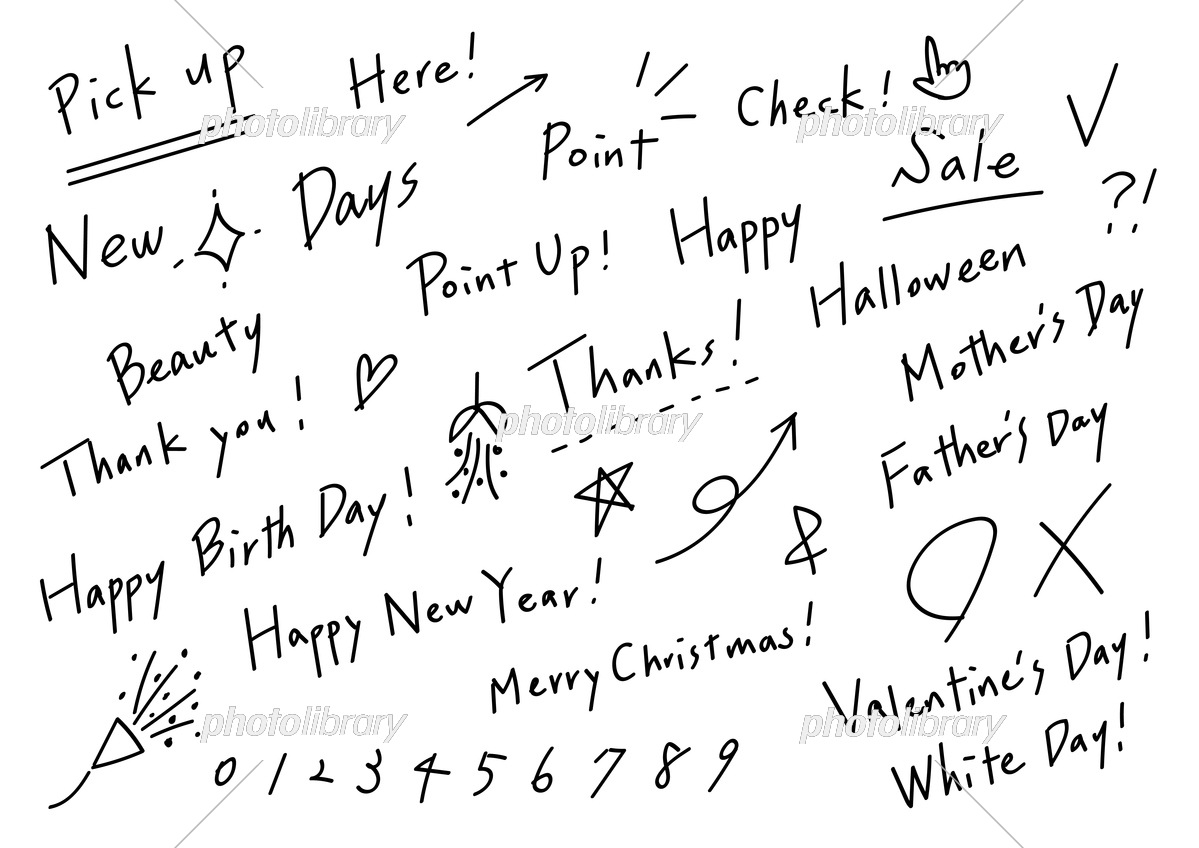 Pick up
Here!
Point
Check!
Sale
?!
New Days
Point Up!
Happy
Halloween
Beauty
Thanks!
Mother's Day
Thank you!
Father's Day
Happy Birth Day!
&
Happy New Year!
Merry Christmas!
Valentine's Day!
White Day!
0 1 2 3 4 5 6 7 8 9
photolibrary
photolibrary
photolibrary
photolibrary
photolibrary